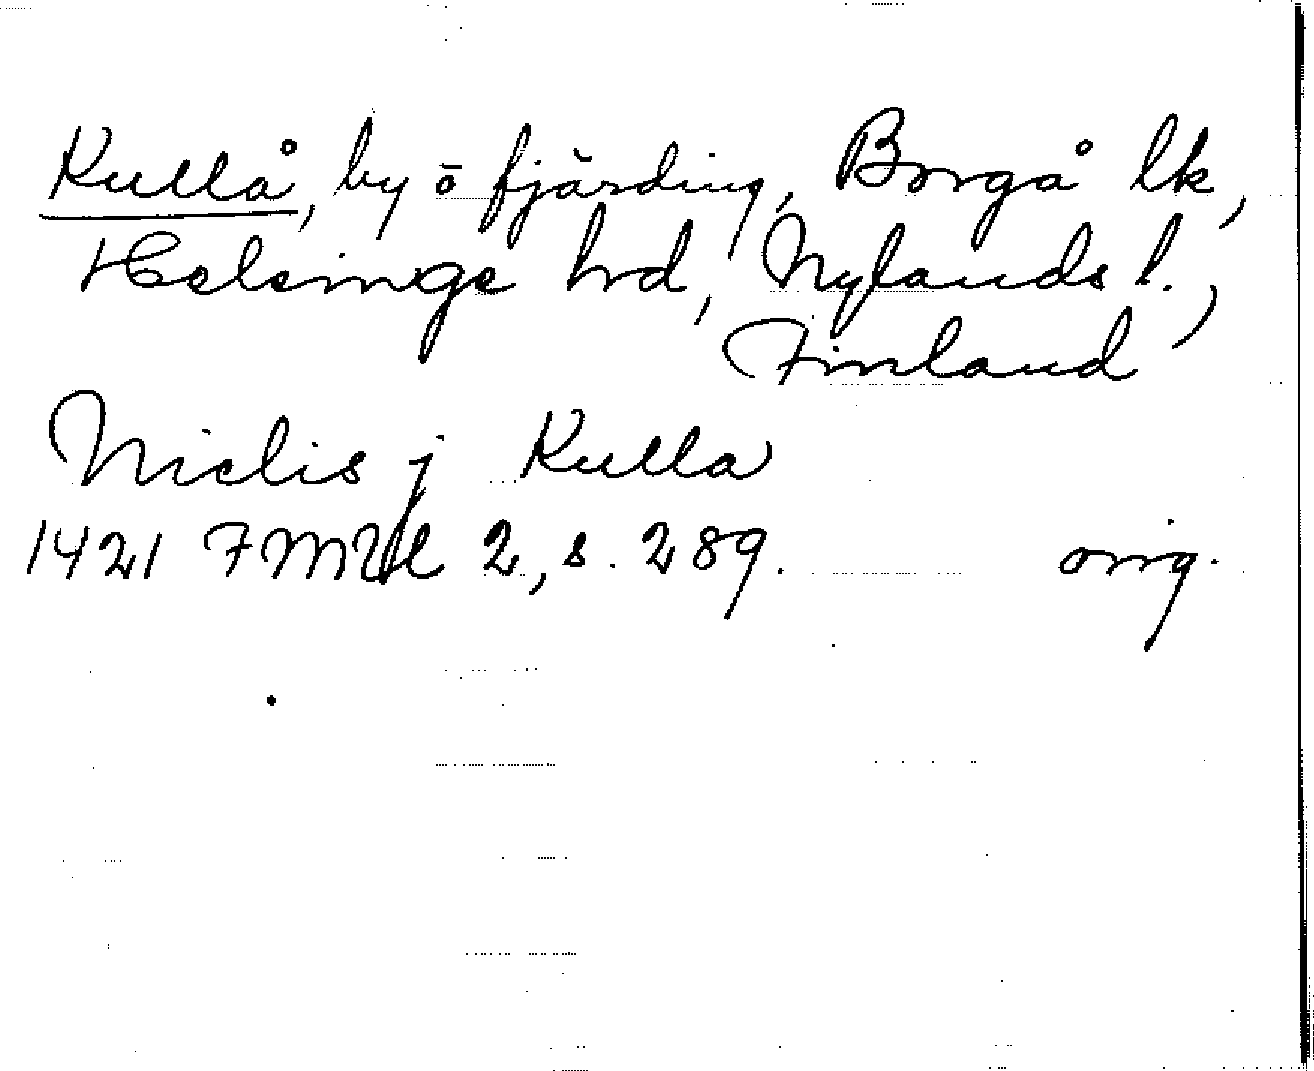 Kullå, by ö fjärding, Borgå lk,
Helsinge hrd, Nylands l.,
Finland
Niclis j Kulla
1421 FMU 2, s. 289. orig.